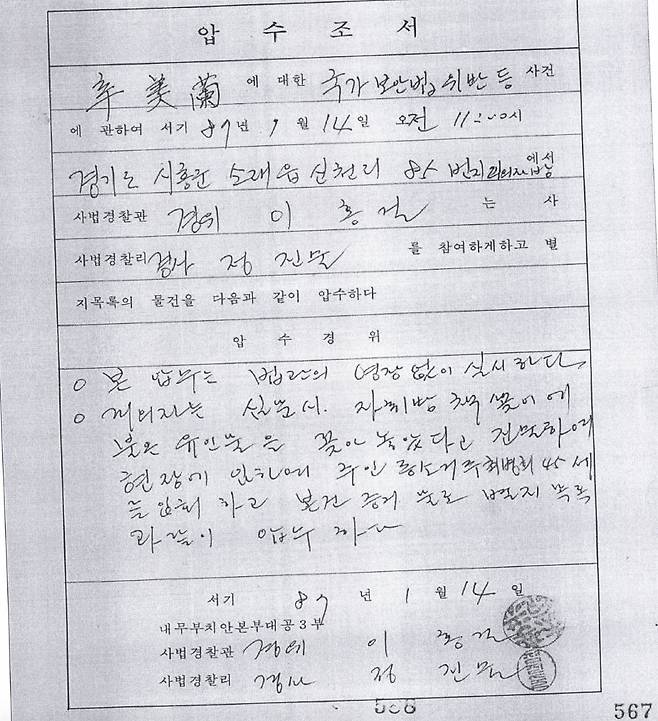 압 수 조 서
辛美蘭 에 대한 국가보안법 위반 등 사건
에 관하여 서기 87년 1월 14일 오전 11:00시
경기도 시흥군 소래읍 신천리 85 번지 피의자 에서
사법경찰관 경위 이 홍 는 사
사법경찰리 경사 정 진 를 참여하게하고 별
지목록의 물건을 다음과 같이 압수하다
압 수 경 위
○ 본 압수는 법관의 영장없이 실시하다
○ 피의자는 신문시 자취방 책꽂이에
불온 유인물을 꽂아 놓았다고 진술하여
현장에 임하여 주인 45세
를 입회 하고 본건 증거물로 별지 목록
과같이 압수 하다
서기 87 년 1 월 14 일
내무부치안본부대공3부
사법경찰관 경위 이 홍
사법경찰리 경사 정 진
568
567